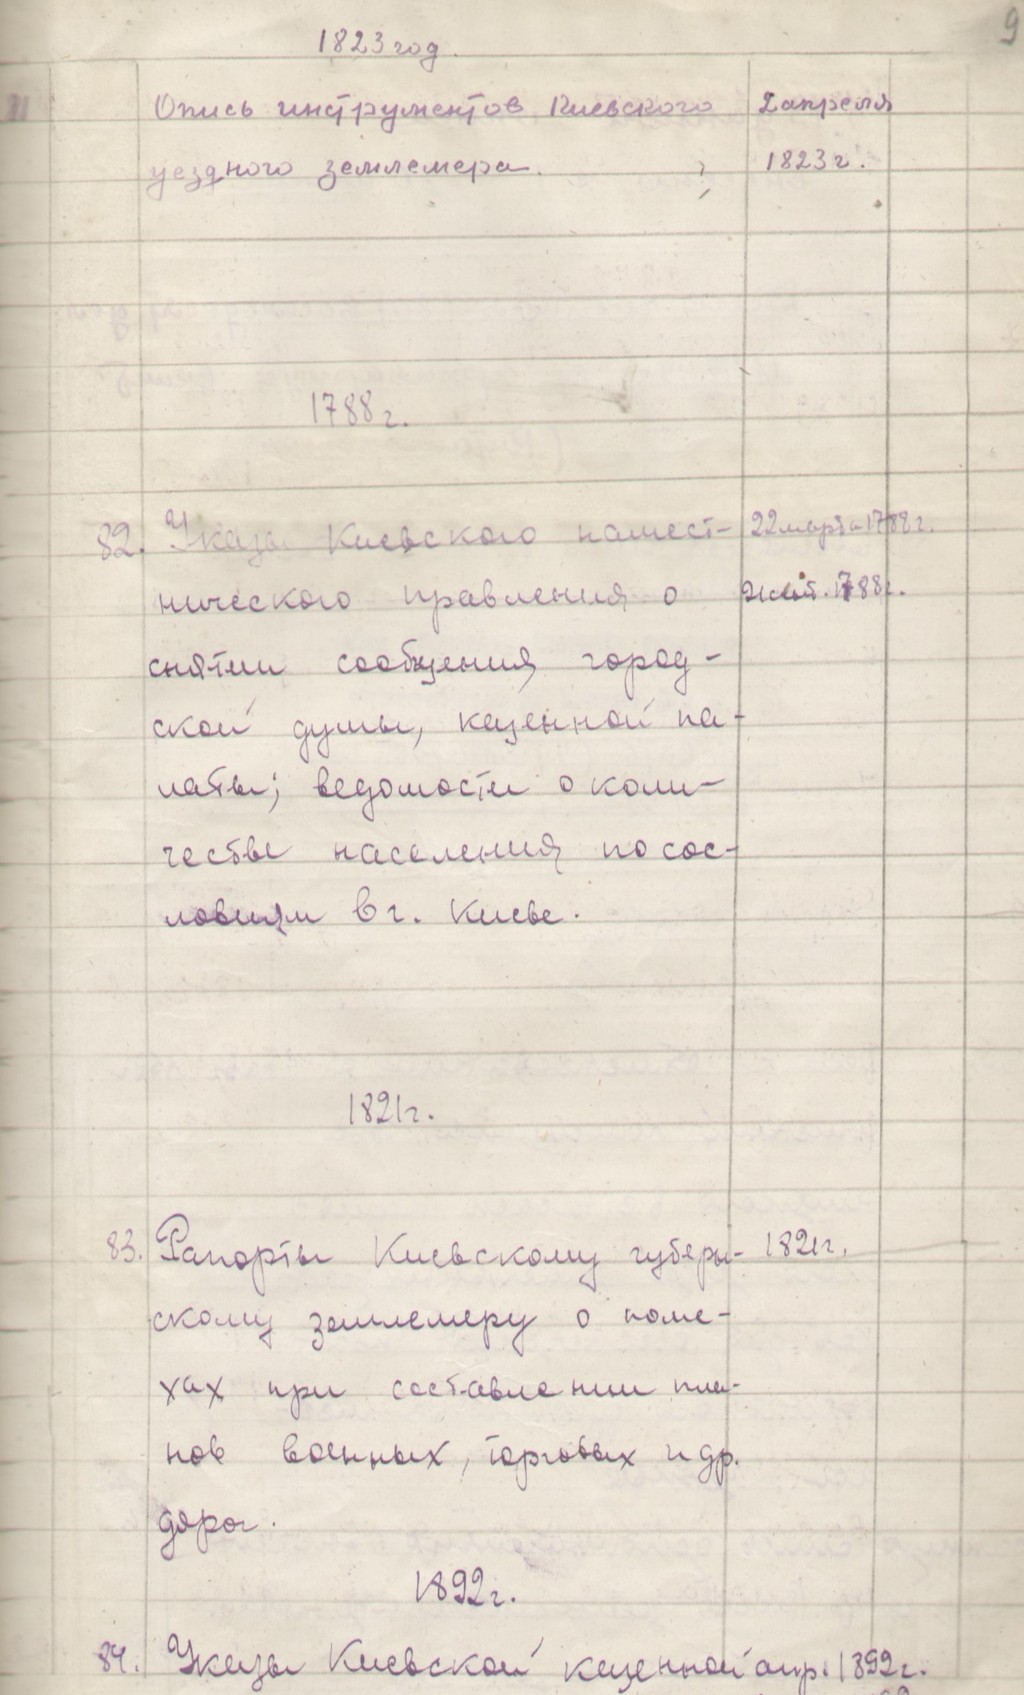 9
1823 год.
Опись инструментов Киевского 2 апреля
уездного землемера. 1823 г.
1788 г.
82. Указы Киевского намест- 22 марта 1788 г.
нического правления о 1788 г.
снятии сообщения город-
ской думы, казенной па-
латы; ведомости о коли-
честве населения по сос-
ловиям в г. Киеве.
1821 г.
83. Рапорты Киевскому губерн- 1821 г.
скому землемеру о поме-
хах при составлении пла-
нов военных, торговых и др.
дорог.
1892 г.
84. Указы Киевской казенной апр. 1892 г.